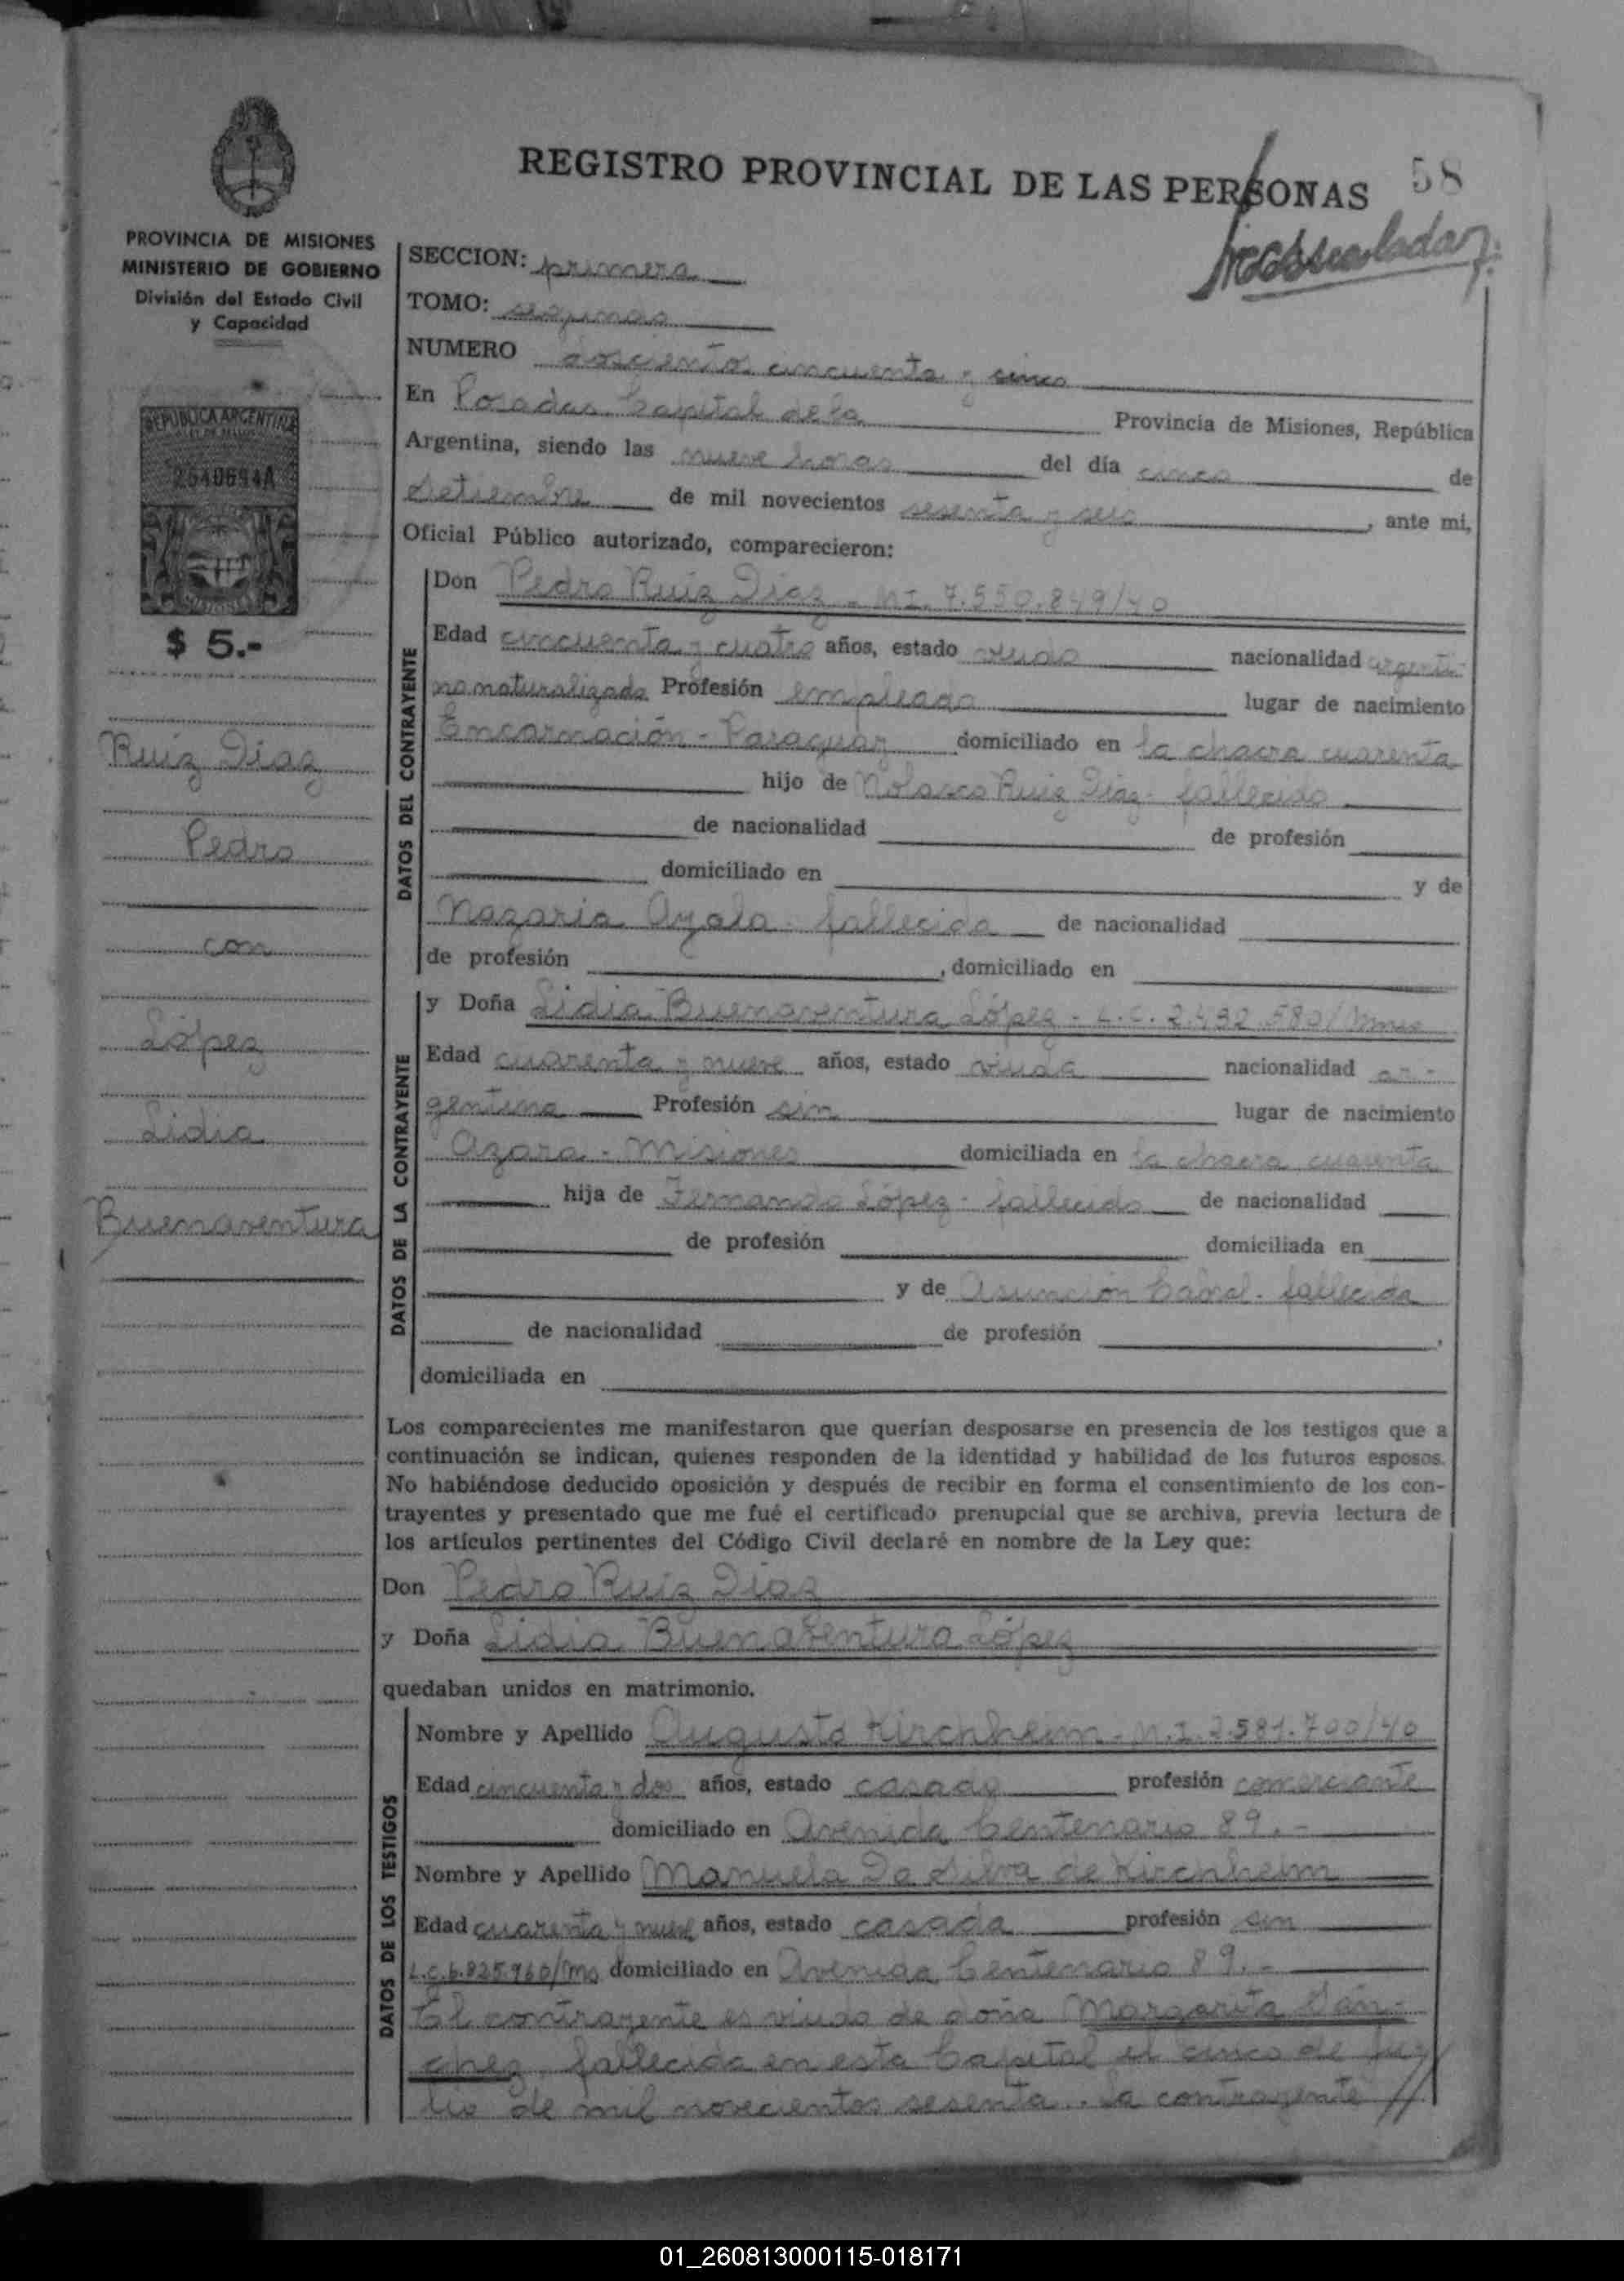 REGISTRO PROVINCIAL DE LAS PERSONAS
58
PROVINCIA DE MISIONES
MINISTERIO DE GOBIERNO
División del Estado Civil
y Capacidad
REPUBLICA ARGENTINA
$ 5.-
Ruiz Diaz
Pedro
con
López
Lidia
Buenaventura
SECCION: primera
TOMO: segundo
NUMERO doscientos cincuenta y cinco
En Posadas Capital de la Provincia de Misiones, República
Argentina, siendo las nueve horas del día cinco de
Setiembre de mil novecientos sesenta y seis, ante mi,
Oficial Público autorizado, comparecieron:
DATOS DEL CONTRAYENTE
Don Pedro Ruiz Diaz - M.I. 7.550.849/40
Edad cincuenta y cuatro años, estado viudo nacionalidad argenti-
no naturalizado Profesión empleado lugar de nacimiento
Encarnación - Paraguay domiciliado en la chacra cuarenta
hijo de Nolasco Ruiz Diaz - fallecido
de nacionalidad de profesión
domiciliado en y de
Nazaria Ayala - fallecida de nacionalidad
de profesión , domiciliado en
DATOS DE LA CONTRAYENTE
y Doña Lidia Buenaventura López - L.C. 2.492.580/Mnes
Edad cuarenta y nueve años, estado viuda nacionalidad ar-
gentina Profesión sin lugar de nacimiento
Azara - Misiones domiciliada en la chacra cuarenta
hija de Fernando López - fallecido de nacionalidad
de profesión domiciliada en
y de Asunción Cabral - fallecida
de nacionalidad de profesión ,
domiciliada en
Los comparecientes me manifestaron que querían desposarse en presencia de los testigos que a
continuación se indican, quienes responden de la identidad y habilidad de los futuros esposos.
No habiéndose deducido oposición y después de recibir en forma el consentimiento de los con-
trayentes y presentado que me fué el certificado prenupcial que se archiva, previa lectura de
los artículos pertinentes del Código Civil declaré en nombre de la Ley que:
Don Pedro Ruiz Diaz
y Doña Lidia Buenaventura López
quedaban unidos en matrimonio.
DATOS DE LOS TESTIGOS
Nombre y Apellido Augusto Kirchheim - M.I. 2.581.700/40
Edad cincuenta y dos años, estado casado profesión comerciante
domiciliado en Avenida Centenario 89.-
Nombre y Apellido Manuela Da Silva de Kirchheim
Edad cuarenta y nueve años, estado casada profesión sin
L.C. 6.825.960/Ms domiciliado en Avenida Centenario 89.-
El contrayente es viudo de doña Margarita Sán-
chez, fallecida en esta Capital el cinco de ju-
lio de mil novecientos sesenta. La contrayente //
01_260813000115-018171